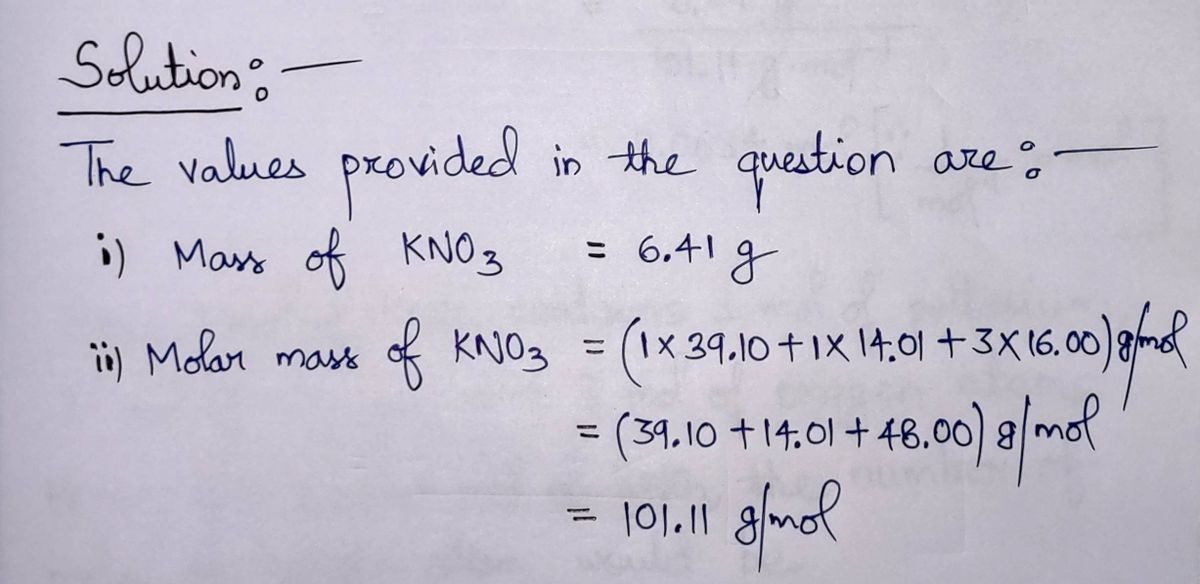 Solution :—
The values provided in the question are :—
i) Mass of KNO3 = 6.41 g
ii) Molar mass of KNO3 = (1 × 39.10 + 1 × 14.01 + 3 × 16.00) g/mol
= (39.10 + 14.01 + 48.00) g/mol
= 101.11 g/mol